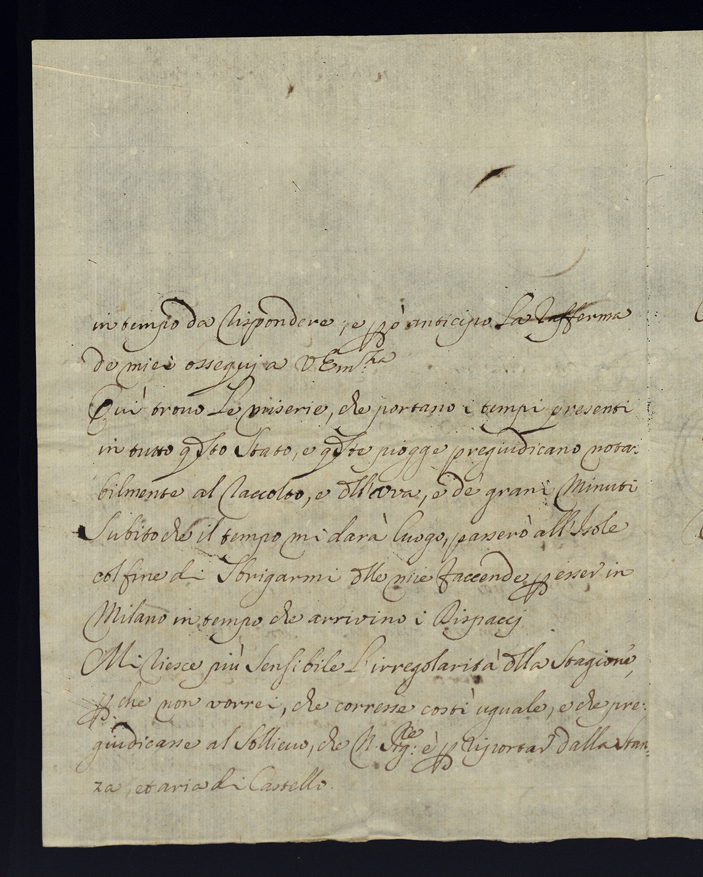 in tempo da rispondere, e p ò anticipo la rafferma
de miei ossequj a V Em.za
Qui trovo le miserie, che portano i tempi presenti
in tutto q.sto Stato, e q.ste piogge pregiudicano nota-
bilmente al raccolto, e dll uva, e de grani Minuti
Subito che il tempo mi darà luogo, passerò all'Isole
col fine di sbrigarmi dlle mie faccende p esser in
Milano in tempo che arrivino i Dispaccj
Mi riesce più sensibile l'irregolarità dlla Stagione,
p che non vorrei, che corresse costì uguale, e che pre-
giudicasse al sollievo, che N. Sig.re è p riportar dalla stan-
za, et aria di Castello.